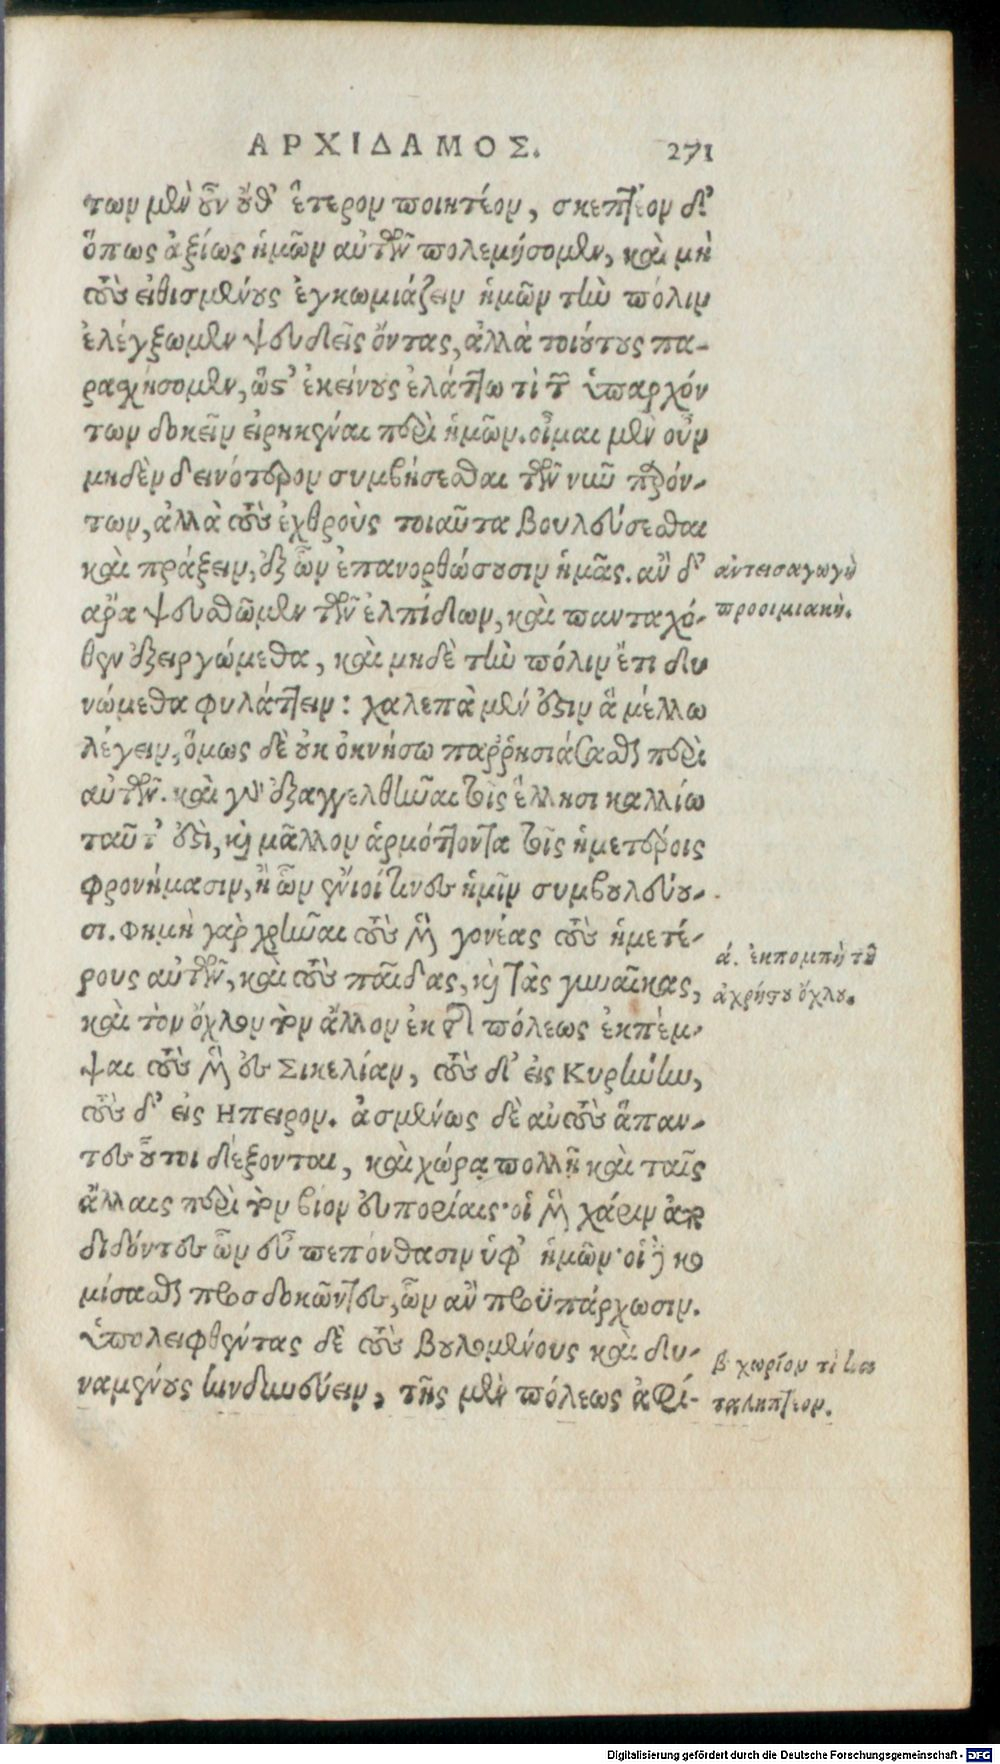 ΑΡΧΙΔΑΜΟΣ. 271
των μὲν οὖν οὐθ' ἕτερον ποιητέον, σκεπτέον δ'
ὅπως ἀξίως ἡμῶν αὐτῶν πολεμήσομεν, καὶ μὴ
τοὺς εἰθισμένους ἐγκωμιάζειν ἡμῶν τὴν πόλιν
ἐλέγξωμεν ψευδεῖς ὄντας, ἀλλὰ τοιούτους πα-
ρασχήσομεν, ὥστ' ἐκείνους ἐλάττω τὶ τῶν ὑπαρχόν
των δοκεῖν εἰρηκέναι περὶ ἡμῶν. οἶμαι μὲν οὖν
μηδὲν δεινότερον συμβήσεσθαι τῶν νῦν παρόν-
των, ἀλλὰ τοὺς ἐχθροὺς τοιαῦτα βουλεύσεσθαι
καὶ πράξειν, ἐξ ὧν ἐπανορθώσουσιν ἡμᾶς. ἂν δ'
ἄρα ψευσθῶμεν τῶν ἐλπίδων, καὶ πανταχό-
θεν ἐξειργώμεθα, καὶ μηδὲ τὴν πόλιν ἔτι δυ
νώμεθα φυλάττειν: χαλεπὰ μέν ἐστιν ἃ μέλλω
λέγειν, ὅμως δὲ οὐκ ὀκνήσω παῤῥησιάσασθαι περὶ
αὐτῶν. καὶ γὰρ ἐξαγγελθῆναι τοῖς ἕλλησι καλλίω
ταῦτ' ἐστὶ, καὶ μᾶλλον ἁρμόττοντα τοῖς ἡμετέροις
φρονήμασιν, ἢ ὧν ἔνιοί τινες ἡμῖν συμβουλεύου-
σι. Φημὴ γὰρ χρῆναι τοὺς μὲν γονέας τοὺς ἡμετέ-
ρους αὐτῶν, καὶ τοὺς παῖδας, καὶ τὰς γυναῖκας,
καὶ τὸν ὄχλον τὸν ἄλλον ἐκ τῆς πόλεως ἐκπὲμ-
ψαι τοὺς μὲν εἰς Σικελίαν, τοὺς δ' εἰς Κυρήνην,
τοὺς δ' εἰς Ηπειρον. ἀσμένως δὲ αὐτοὺς ἅπαν-
τες οὗτοι δέξονται, καὶ χώρᾳ πολλῇ καὶ ταῖς
ἄλλαις περὶ τὸν βίον εὐπορίαις· οἱ μὲν χάριν ἀπο
διδόντες ὧν εὖ πεπόνθασιν ὑφ' ἡμῶν· οἱ δὲ κο
μίσασθαι προσδοκῶντες, ὧν ἂν προϋπάρχωσιν.
ὑπολειφθέντας δὲ τοὺς βουλομένους καὶ δυ-
ναμένους κινδυνεύειν, τῆς μὲν πόλεως ἀφεί-
ἀντεισαγωγὴ
προοιμιακή.
ά. ἐκπομπὴ τοῦ
ἀχρήστου ὄχλου.
β χωρίον τὶ κα
ταληπτέον.
Digitalisierung gefördert durch die Deutsche Forschungsgemeinschaft - DFG